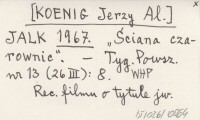 [KOENIG Jerzy Al.]
JALK 1967. „Ściana cza-
rownic". — Tyg. Powsz.
nr 13 (26 III): 8. WHP
Rec. filmu o tytule jw.